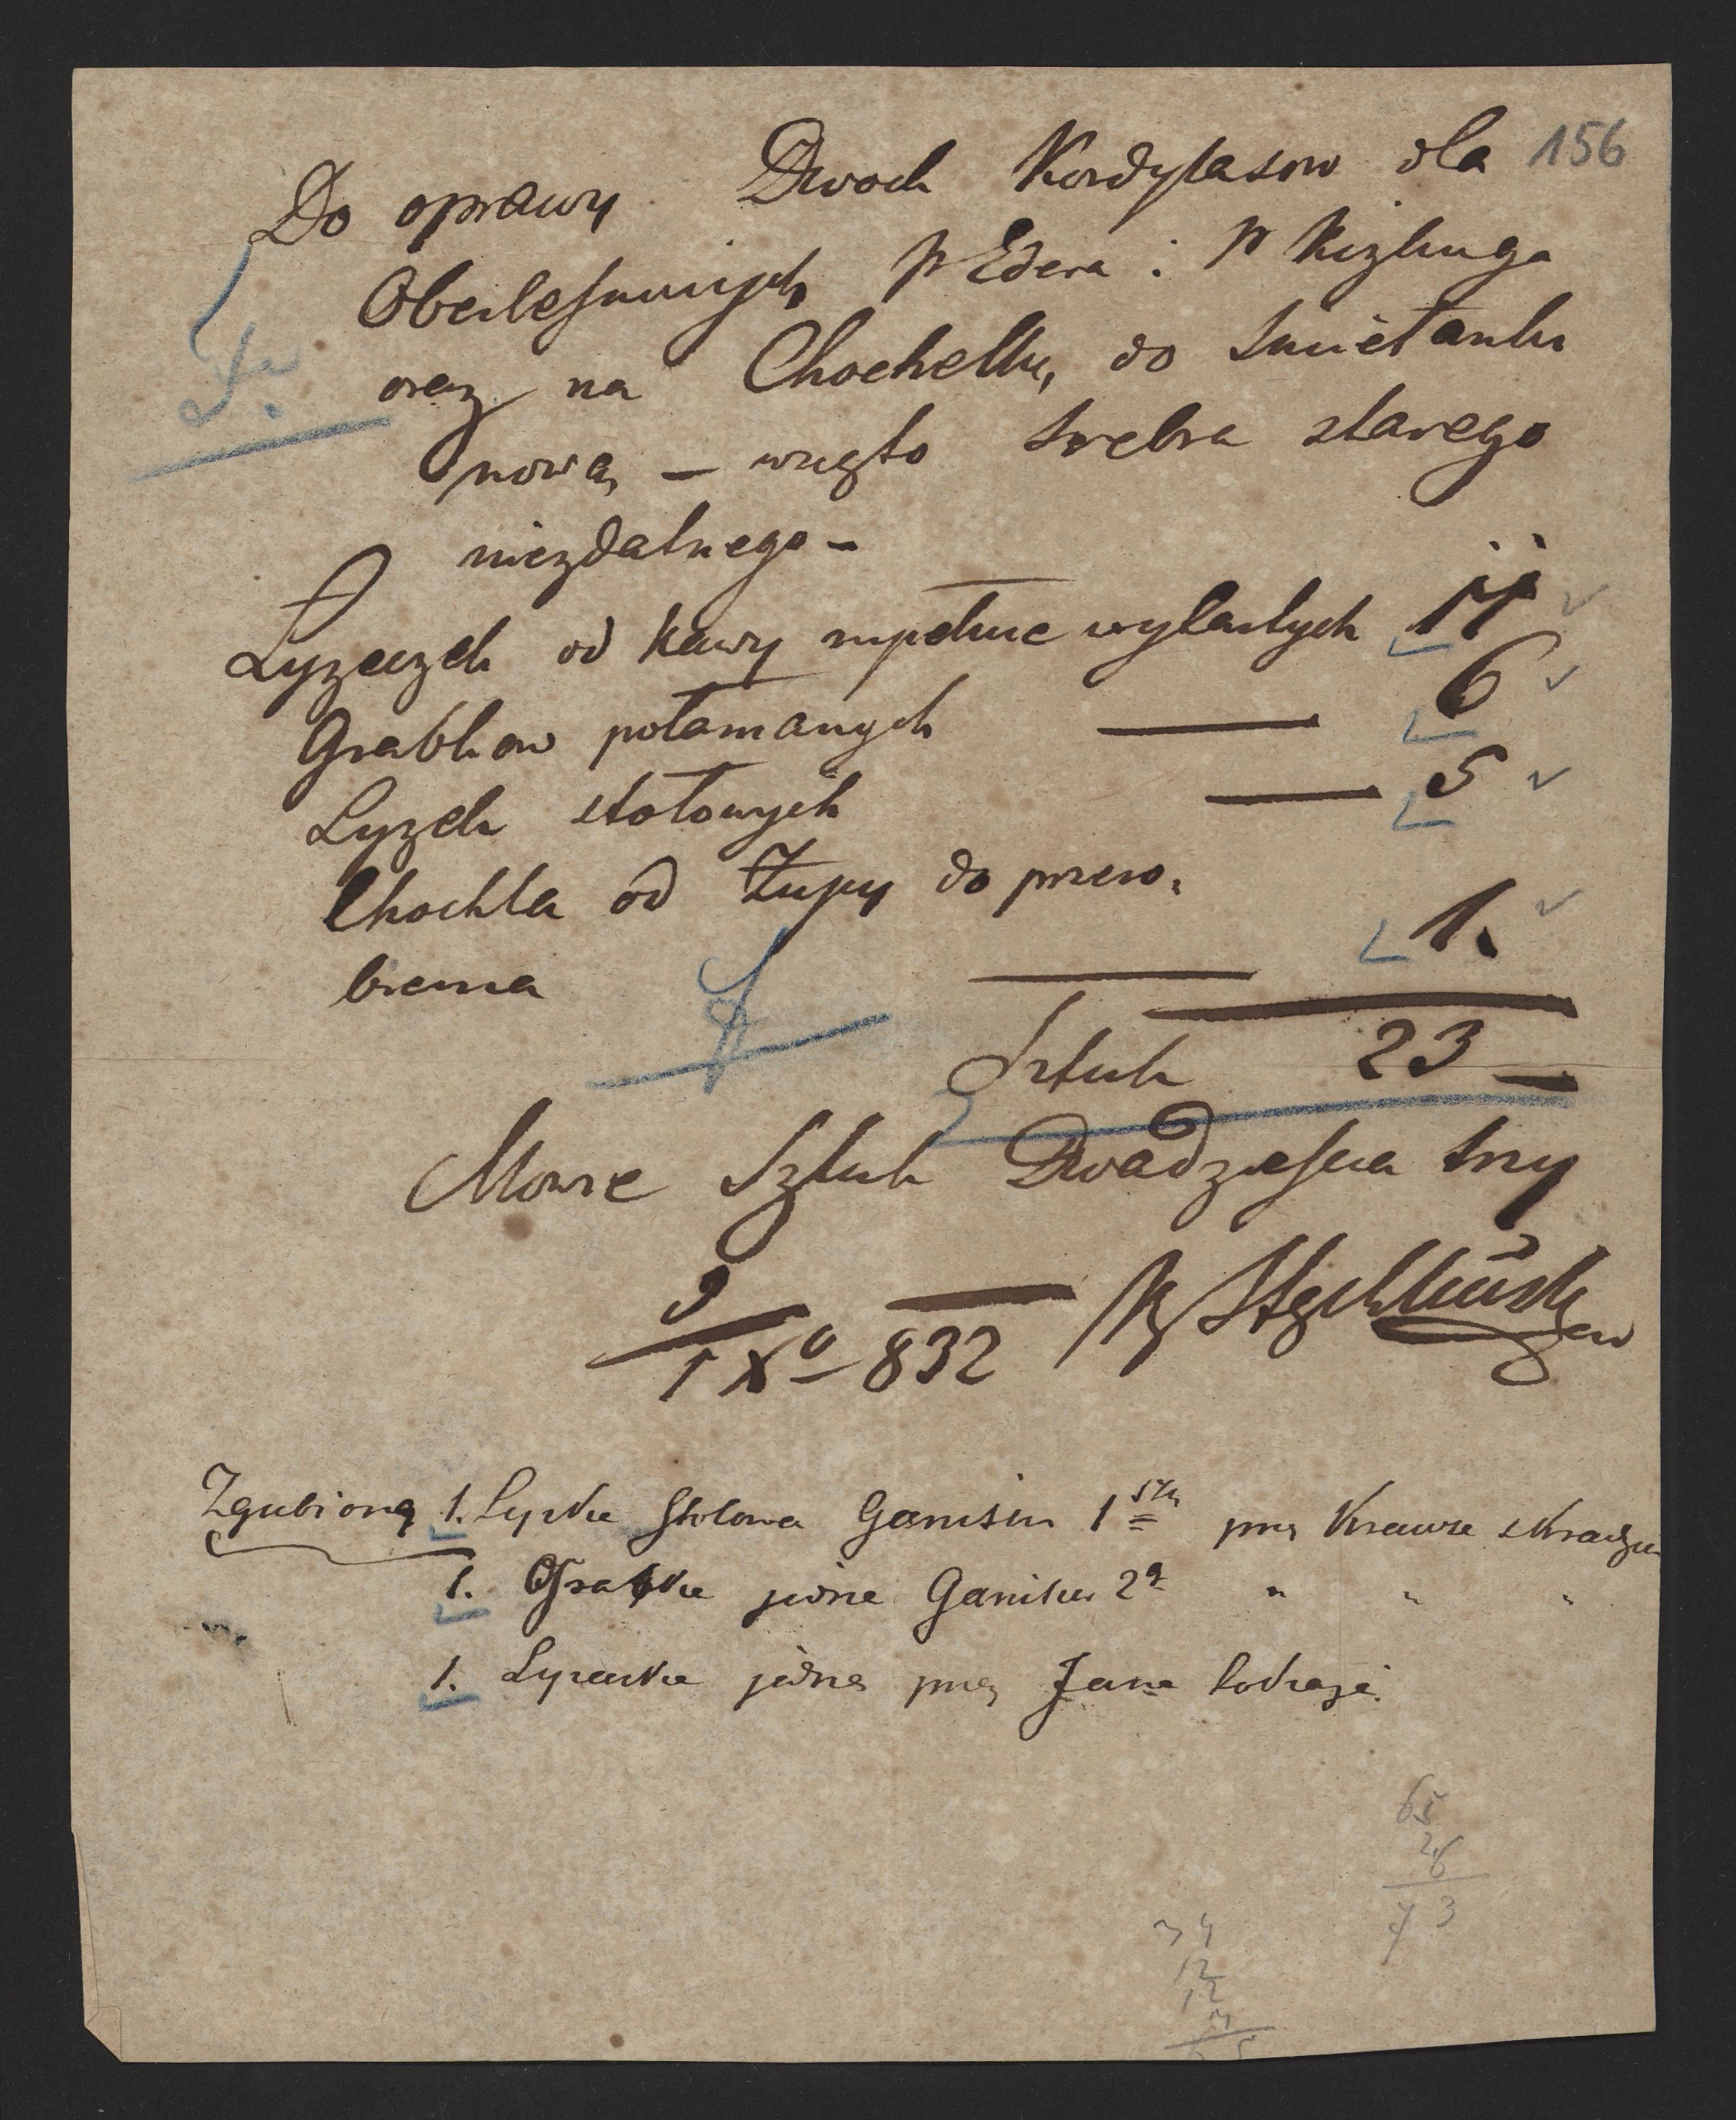 156
Do oprawy Dwoch Kordylasow dla
Oberlesniczych P Edera i P Kizlinga
oraz na Chochelkę do Smietanki
nową — wzięto Srebra starego
niezdatnego —
Łyzeczek od Kawy zupełnie wytartych 11
Grabkow połamanych — 6
Lyzek stołowych — 5
Chochla od Zupy do przero-
bienia — 1.
Sztuk 23 —
Mowie Sztuk Dwadziescia trzy
9/IXa 832
Zgubioną 1. Lyzka Stolowa Ganisu 1 przez Krawca
1. Grabka jedna Ganitur 2a " " "
1. Lyzeczka jedna przez Jana
65
26
73
34
12
12